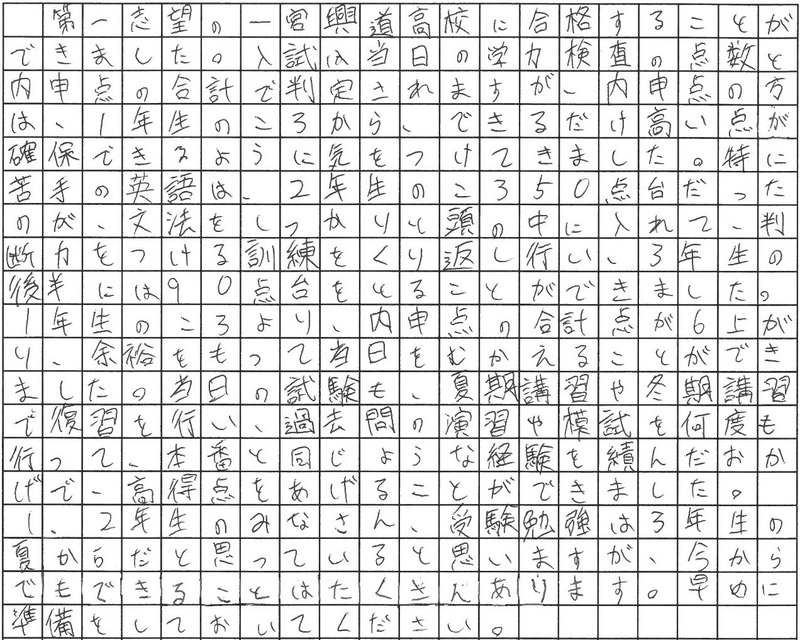 第一志望の一宮興道高校に合格することが
できました。入試は当日の学力検査の点数と
内申点の合計で判定されますが、内申点の方
は、1年生のころから、できるだけ高い点が
確保できるように気をつけてきました。特に
苦手の英語は、2年生のころ50点台だった
のが、文法をしっかりと頭の中に入れて、判
断力をつける訓練をくり返し行い、3年生の
後半には90点台をとることができました。
1年生のころより、内申点の合計点が6上が
り、余裕をもって当日をむかえることができ
ました。当日の試験も、夏期講習や冬期講習
で復習を行い、過去問の演習や模試を何度も
行って、本番と同じような経験を績んだおか
げで、高得点をあげることができました。
1、2年生のみなさん、受験勉強は3年生の
夏からだと思っていると思いますが、今から
でもできることはたくさんあります。早めに
準備をしておいてください。